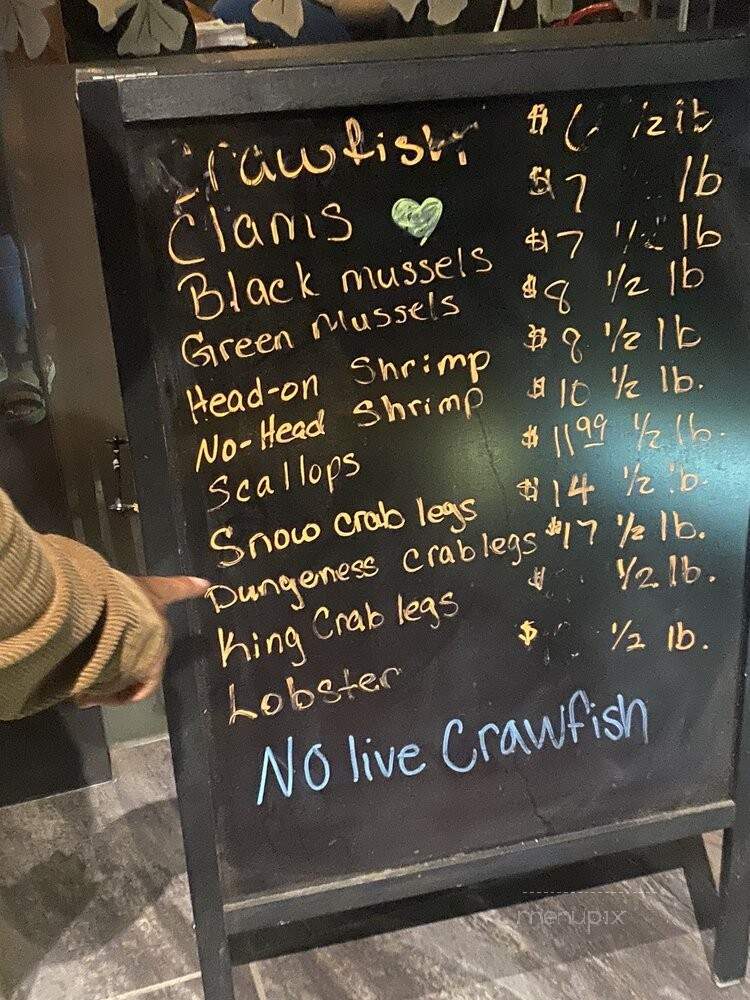 Crawfish $6 1/2 lb
Clams $7 lb
Black mussels $7 1/2 lb
Green Mussels $8 1/2 lb
Head-on Shrimp $8 1/2 lb
No-Head Shrimp $10 1/2 lb.
Scallops $11.99 1/2 lb.
Snow crab legs $14 1/2 lb.
Dungeness Crab legs $17 1/2 lb.
King Crab legs $ 1/2 lb.
Lobster $ 1/2 lb.
No live Crawfish
menupix